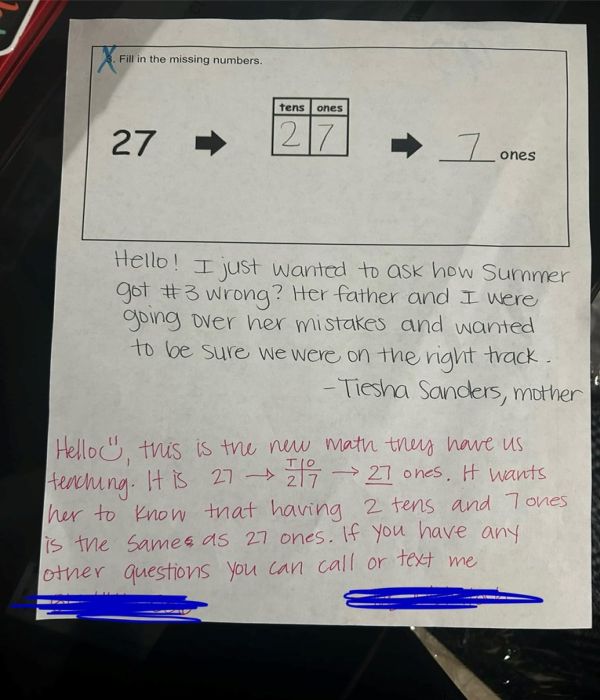 3. Fill in the missing numbers.
tens ones
27 2 7 7 ones
Hello! I just wanted to ask how Summer
got #3 wrong? Her father and I were
going over her mistakes and wanted
to be sure we were on the right track.
- Tiesha Sanders, mother
Hello, this is the new math they have us
T O
teaching. It is 27 → 2 7 → 27 ones. It wants
her to know that having 2 tens and 7 ones
is the same as 27 ones. If you have any
other questions you can call or text me